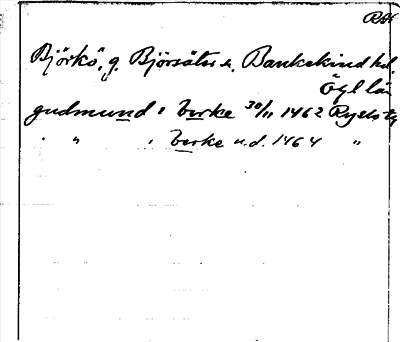 RAÄ
Björkö, g. Björsäter s. Bankekind hd.
Ögl län
gudmund i berke 30/11 1462 Ryels
" " i berke u.d. 1464 "